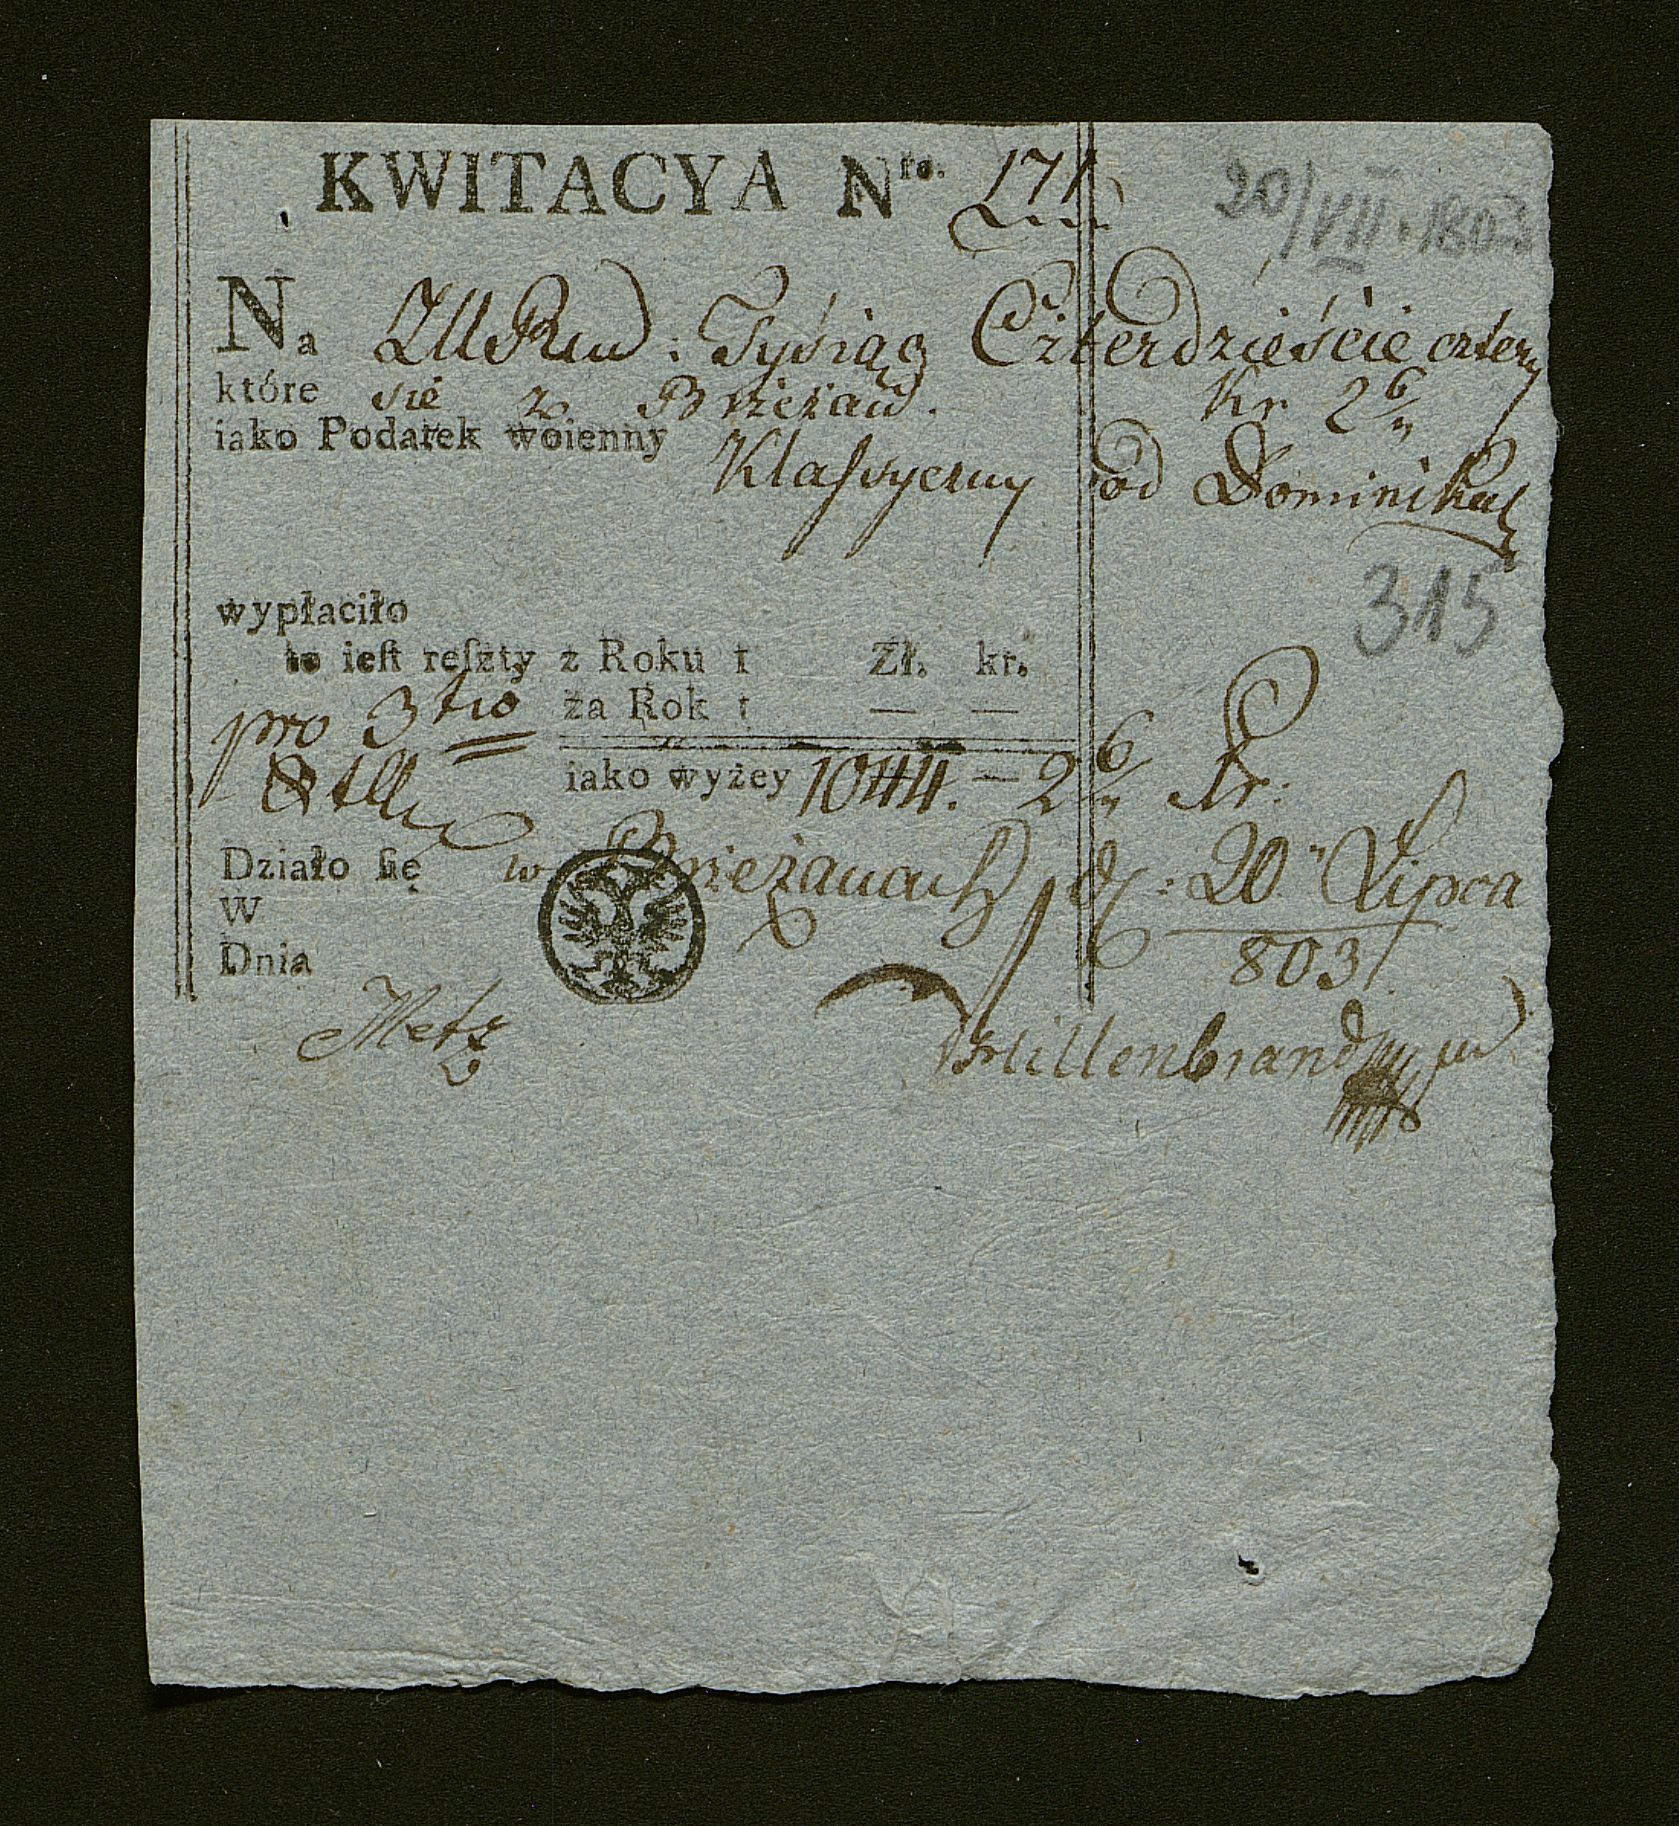 KWITACYA Nro. 171
20/VII. 1803
Na ZłRhn : Tysiąc Czterdzieście cztery
które się z Brzeżan. Kr 26
iako Podatek woienny
Klassyczny od Dominikal
315
wypłaciło
to ieſt reſzty z Roku 1 Zł. kr.
pro 3tio za Rok 1 — —
iako wyżey 1044. — 26 Kr:
Działo ſię w Brzeżanach d: 20 Lipca
W
803
Dnia
Metz
Hillenbrand